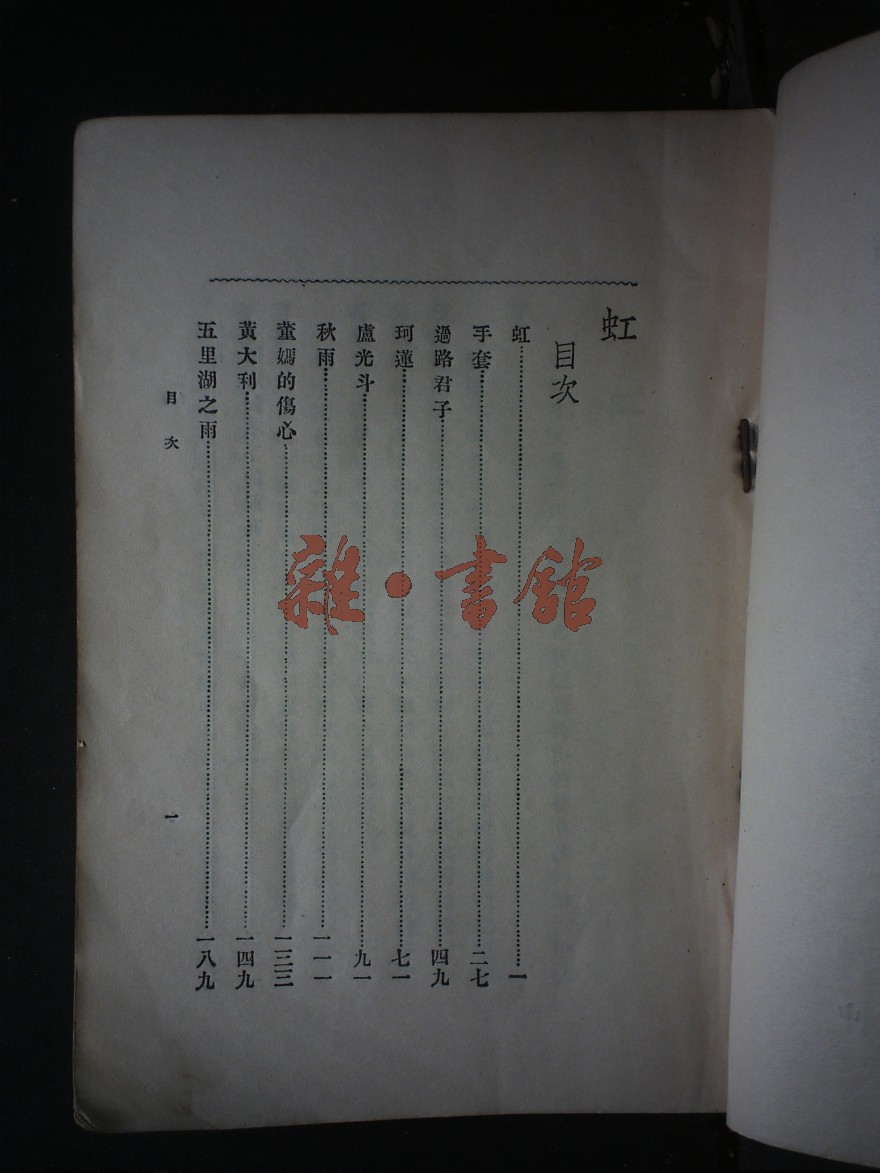 虹
目次
虹……一
手套……二七
過路君子……四九
珂蓮……七一
盧光斗……九一
秋雨……一一一
董嫣的傷心……一三三
黃大利……一四九
五里湖之雨……一八九
目次
一
雜·書館